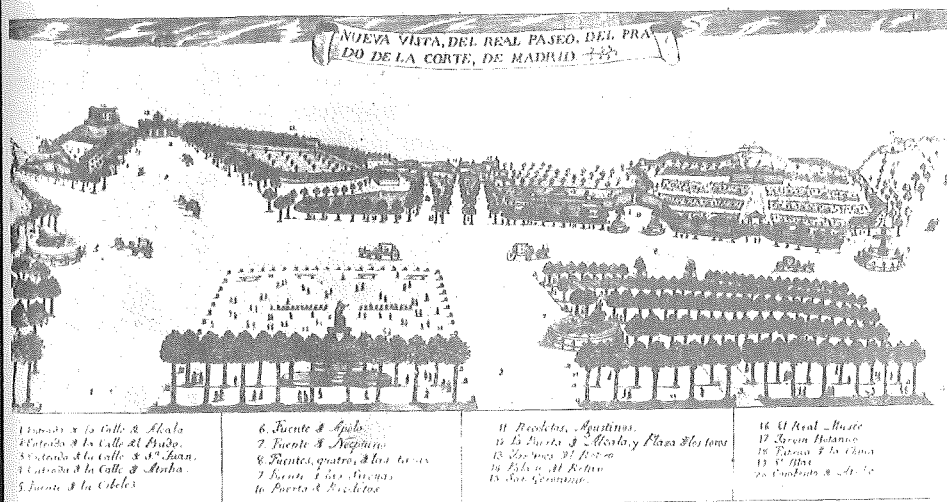 NUEVA VISTA, DEL REAL PASEO, DEL PRA
DO DE LA CORTE, DE MADRID
1 Entrada & la Calle & Alcala
2 Entrada & la Calle del Prado.
3 Entrada & la Calle & Sn. Juan.
4 Entrada & la Calle & Atocha.
5. Fuente & la Cibeles
6. Fuente & Apolo
7. Fuente & Neptuno
8. Fuentes, quatro, & las
9. Fuente & las
10. Puerta & Recoletos
11 Recoletos, Agustinos.
12 La Puerta & Alcala, y Plaza & los toros
13 Jardines del Retiro
14 Palacio del Retiro
15 San Geronimo.
16 El Real Museo
17 Jardin Botanico
18 Fabrica & la China
19 Sn. Blas
20